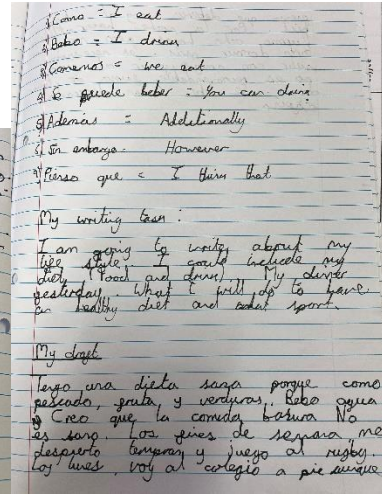 1) Como = I eat
2) Bebo = I drink
3) Comemos = we eat
4) Se puede beber = You can drink
5) Además = Additionally
6) Sin embargo = However
7) Pienso que = I think that
My writing task :
I am going to write about my
life style. I could include my
diet, (food and drink). My dinner
yesterday. What I will do to have
a healthy diet and sport.
My draft
Tengo una dieta sana porque como
pescado, fruta y verduras. Bebo agua
y Creo que la comida basura No
es sano. Los fines de semana, me
despierto temprano y juego al rugby.
Los lunes, voy al colegio a pie aunque